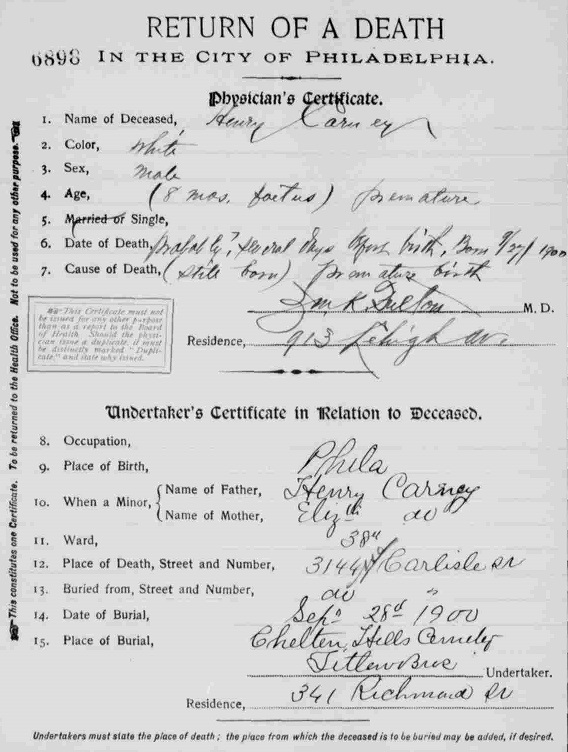 RETURN OF A DEATH
6898 IN THE CITY OF PHILADELPHIA.
Physician's Certificate.
1. Name of Deceased, Henry Carney
2. Color, white
3. Sex, male
4. Age, (8 mos. foetus) premature
5. Married or Single,
6. Date of Death, probably, several days before birth, Born 9/27/1900
7. Cause of Death, (still born) premature birth
M. D.
Residence, 913 Lehigh av.
This Certificate must not
be issued for any other purpose
than as a report to the Board
of Health. Should the physi-
cian issue a duplicate, it must
be distinctly marked "Dupli-
cate," and state why issued.
Undertaker's Certificate in Relation to Deceased.
8. Occupation,
9. Place of Birth, Phila
10. When a Minor, Name of Father, Henry Carney
Name of Mother, Elizth do
11. Ward, 38th
12. Place of Death, Street and Number, 3144 Carlisle St
13. Buried from, Street and Number, do "
14. Date of Burial, Sep. 28d 1900
15. Place of Burial, Chelten Hills Cemetery
Titlow Bros Undertaker.
Residence, 341 Richmond St
Undertakers must state the place of death; the place from which the deceased is to be buried may be added, if desired.
This constitutes one Certificate. To be returned to the Health Office. Not to be used for any other purpose.